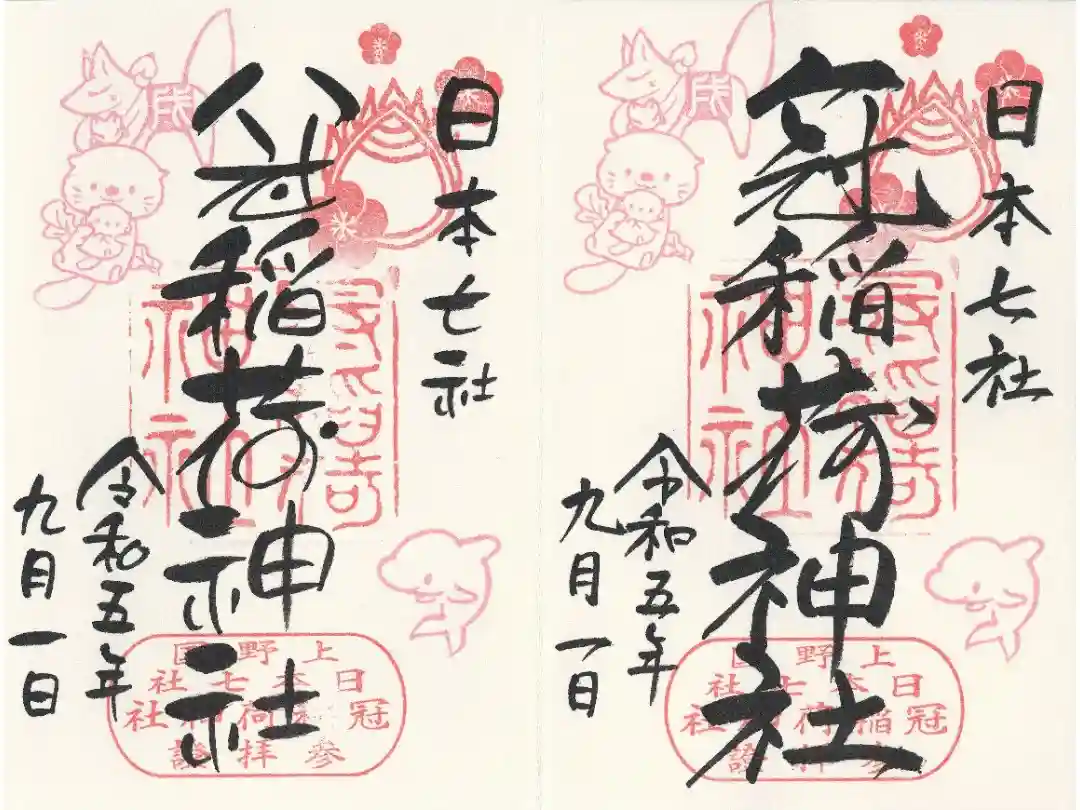 日本七社
冠稲荷神社
令和五年
九月一日
上野国
日本七社
冠稲荷神社
参拝證
日本七社
冠稲荷神社
令和五年
九月一日
上野国
日本七社
冠稲荷神社
参拝證